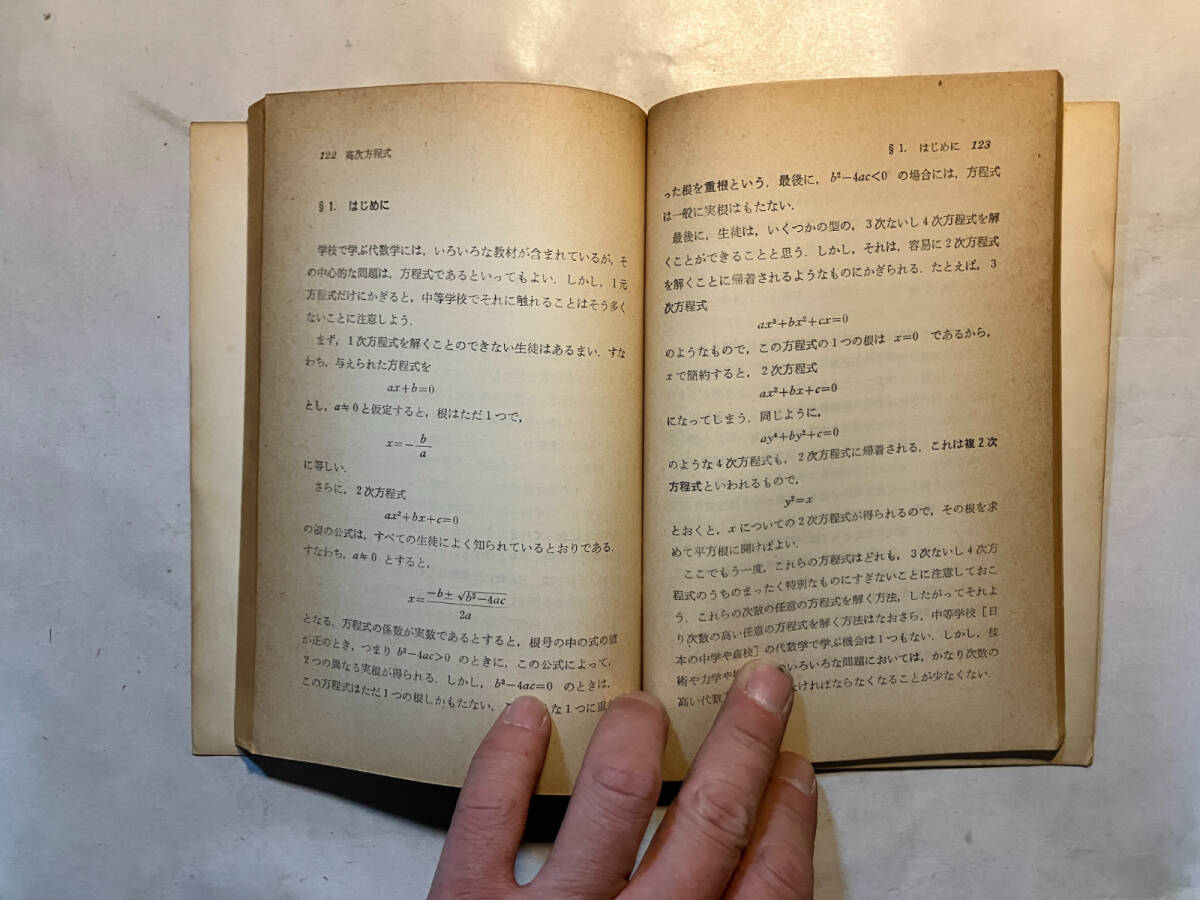 122 高次方程式
§1. はじめに
学校で学ぶ代数学には，いろいろな教材が含まれているが，そ
の中心的な問題は，方程式であるといってもよい．しかし，1元
方程式だけにかぎると，中等学校でそれに触れることはそう多く
ないことに注意しよう．
まず，1次方程式を解くことのできない生徒はあるまい．すな
わち，与えられた方程式を
ax+b=0
とし，a≒0と仮定すると，根はただ1つで，
x=-b/a
に等しい．
さらに，2次方程式
ax²+bx+c=0
の根の公式は，すべての生徒によく知られているとおりである．
すなわち，a≒0 とすると，
x=(-b±√b²-4ac)/2a
となる．方程式の係数が実数であるとすると，根号の中の式の値
が正のとき，つまり b²-4ac>0 のときに，この公式によって，
2つの異なる実根が得られる．しかし，b²-4ac=0 のときは，
この方程式はただ1つの根しかもたない．な1つに重
§1. はじめに 123
った根を重根という．最後に，b²-4ac<0 の場合には，方程式
は一般に実根はもたない．
最後に，生徒は，いくつかの型の，3次ないし4次方程式を解
くことができることと思う．しかし，それは，容易に2次方程式
を解くことに帰着されるようなものにかぎられる．たとえば，3
次方程式
ax³+bx²+cx=0
のようなもので，この方程式の1つの根は x=0 であるから，
xで簡約すると，2次方程式
ax²+bx+c=0
になってしまう．同じように，
ay⁴+by²+c=0
のような4次方程式も，2次方程式に帰着される．これは複2次
方程式といわれるもので，
y²=x
とおくと，xについての2次方程式が得られるので，その根を求
めて平方根に開けばよい．
ここでもう一度，これらの方程式はどれも，3次ないし4次方
程式のうちのまったく特別なものにすぎないことに注意しておこ
う．これらの次数の任意の方程式を解く方法，したがってそれよ
り次数の高い任意の方程式を解く方法はなおさら，中等学校［日
本の中学や高校］の代数学で学ぶ機会は1つもない．しかし，技
術や力学やのいろいろな問題においては，かなり次数の
高い代数なければならなくなることが少なくない．